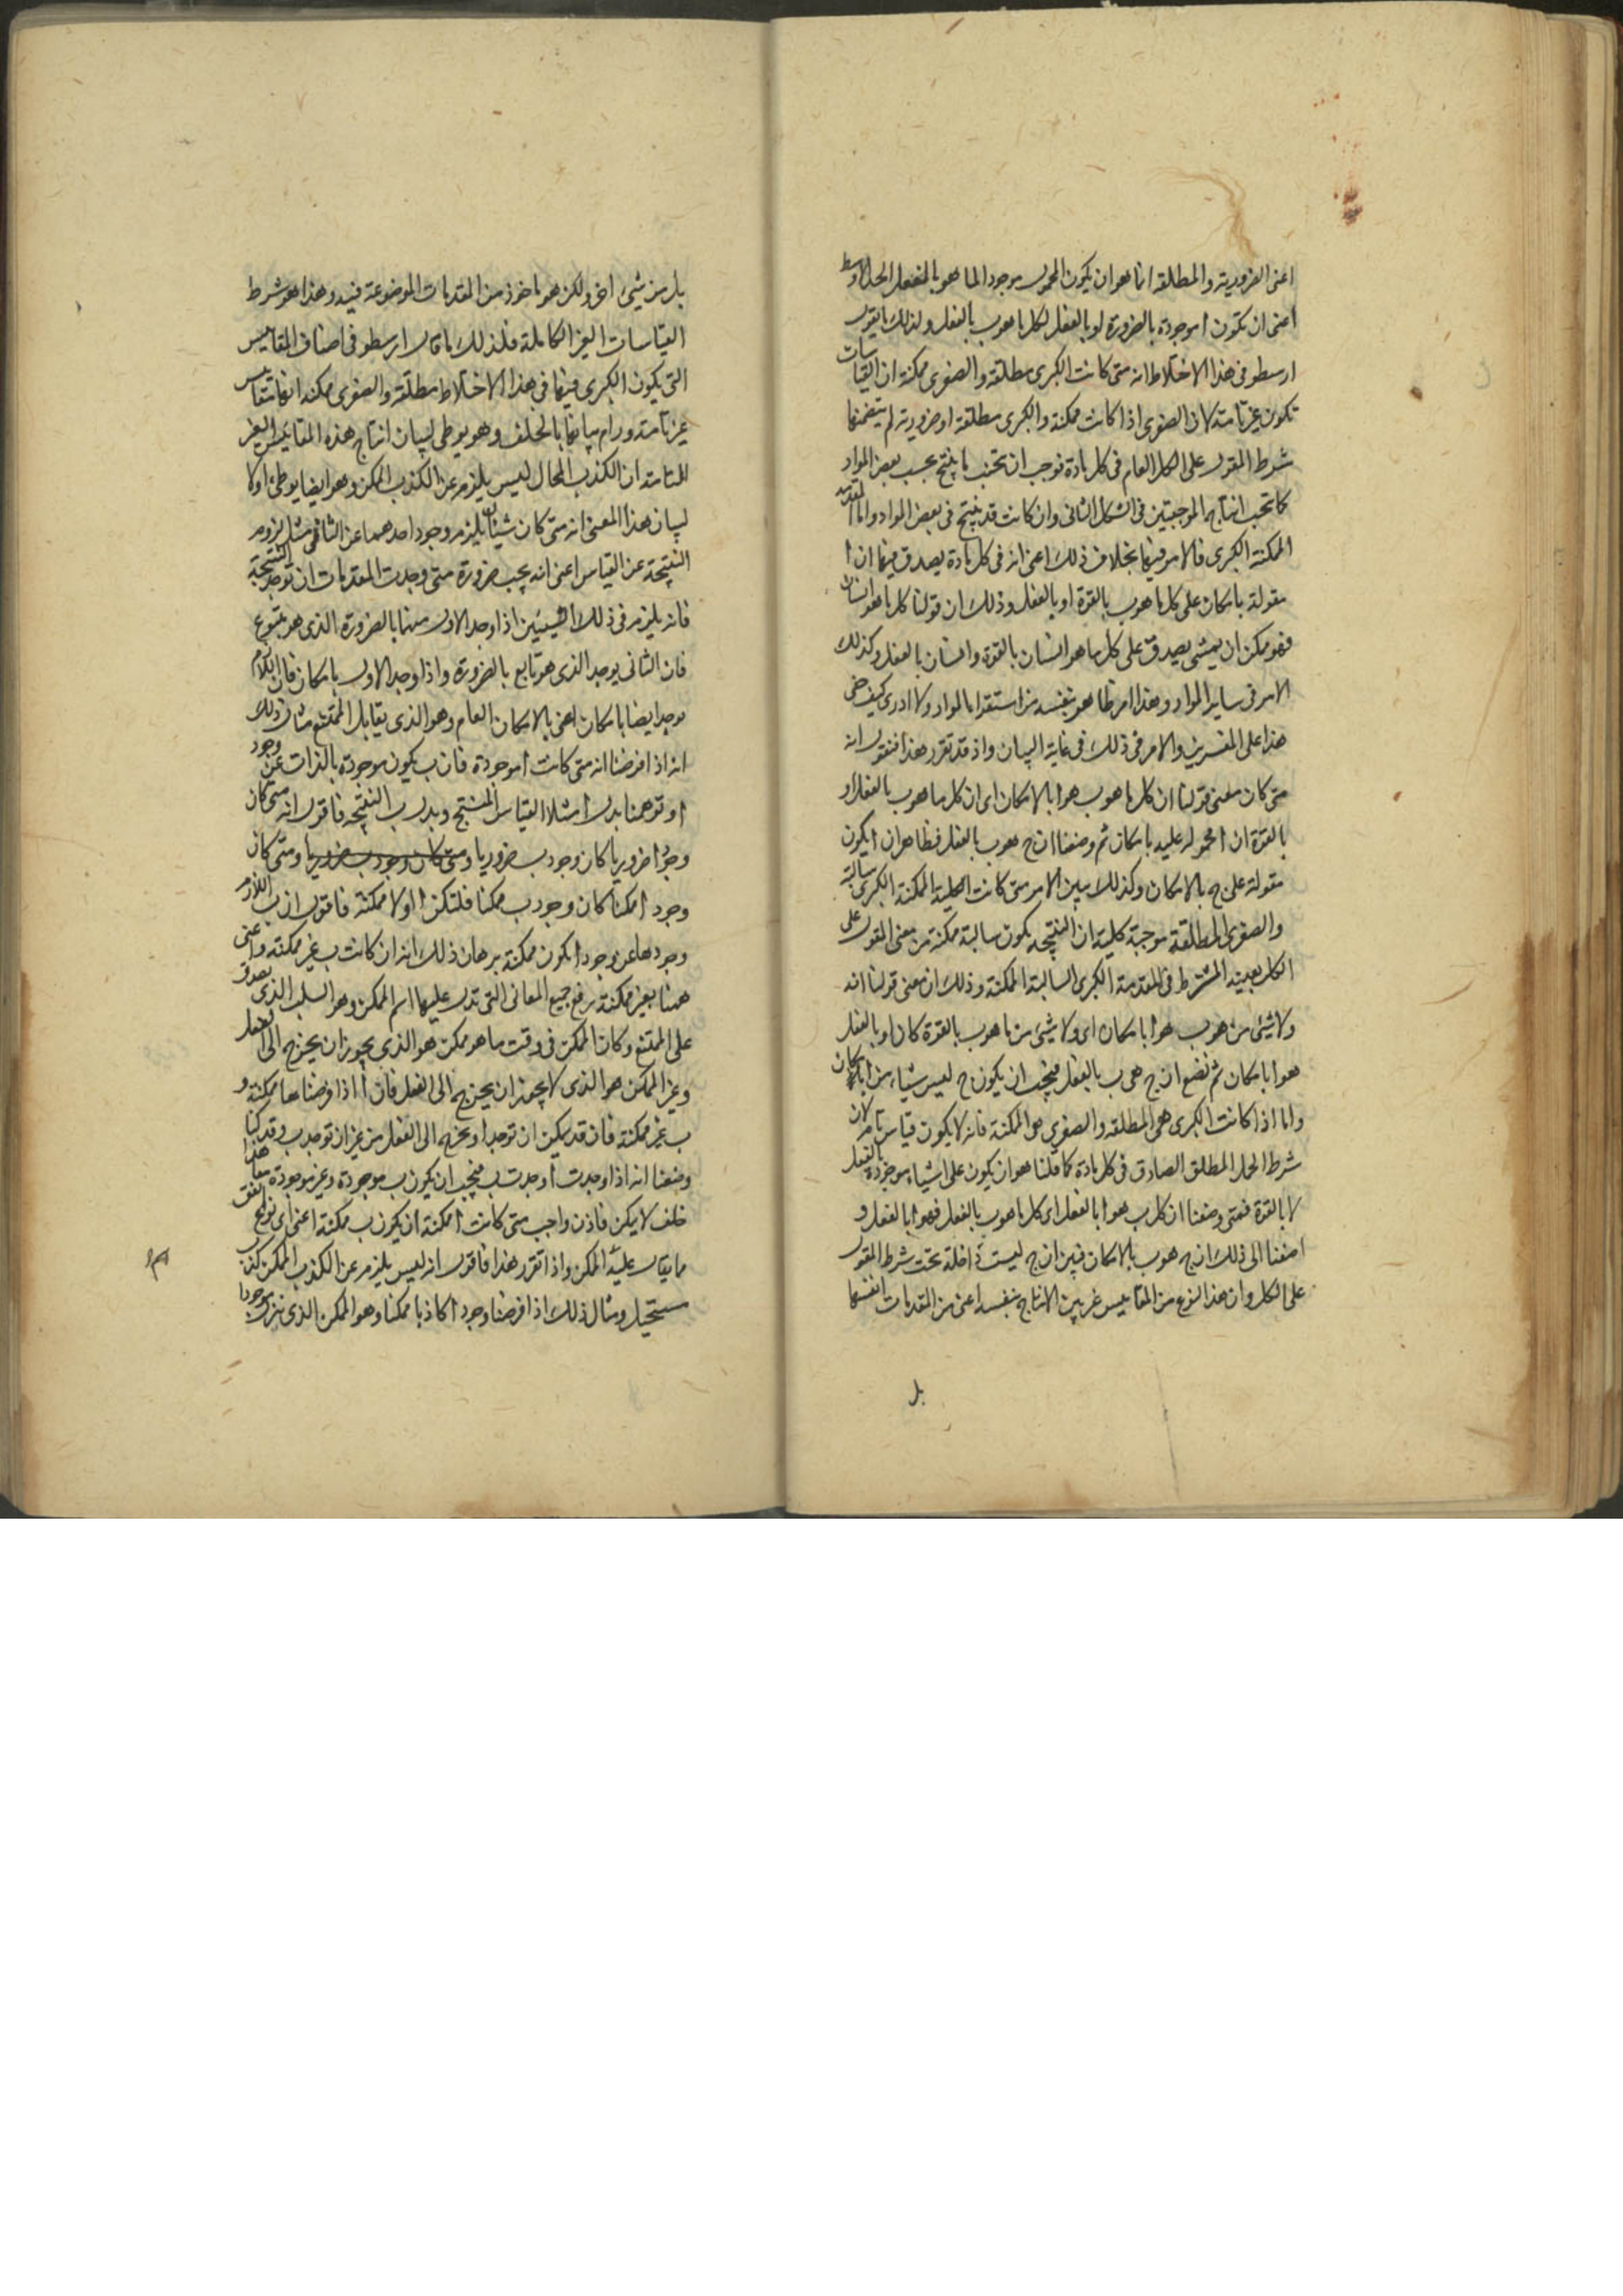 اعنى الضرورية والمطلقة انما هو ان يكون المحمول موجودا لما هو بالفعل الحد الاوسط
اعنى ان تكون ا موجودة بالضرورة او بالفعل لكل ما هو ب بالفعل ولذلك ما يقول
ارسطو فى هذا الاختلاط انه متى كانت الكبرى مطلقة والصغرى ممكنة ان القياسات
تكون غير تامة لان الصغرى اذا كانت ممكنة والكبرى مطلقة او ضرورية لم يتضمنها
شرط المقول على الكل العام فى كل مادة فوجب ان تجتنب ما ينتج بحسب بعض المواد
كما تجتنب انتاج الموجبتين فى الشكل الثانى وان كانت قد ينتج فى بعض المواد واما المقدمة
الممكنة الكبرى فالامر فيها بخلاف ذلك اعنى انه فى كل مادة يصدق فيها ان ا
مقولة بامكان على كل ما هو ب بالقوة او بالفعل وذلك ان قولنا كل ما هو انسان
فهو ممكن ان يمشى يصدق على كل ما هو انسان بالقوة وانسان بالفعل وكذلك
الامر فى ساير المواد وهذا امر ظاهر بنفسه من استقرا المواد ولا ادرى كيف خفى
هذا على المفسرين والامر فى ذلك فى غاية البيان واذ قد تقرر هذا فنقول انه
متى كان معنى قولنا ان كل ما هو ب هو ا بالامكان اى ان كل ما هو ب بالفعل او
بالقوة ان ا محمولة عليه بامكان ثم وضعنا ان ج هو ب بالفعل فظاهر ان ا يكون
مقولة على ج بالامكان وكذلك يبين الامر متى كانت الكلية الممكنة الكبرى سالبة
والصغرى المطلقة موجبة كلية ان النتيجة يكون سالبة ممكنة من معنى المقول على
الكل بعينه المشترط فى المقدمة الكبرى السالبة الممكنة وذلك ان معنى قولنا انه
ولا شئ من هو ب هو ا بامكان اى ولا شئ من ما هو ب بالقوة كان او بالفعل
هو ا بامكان ثم نضع ان ج هى ب بالفعل فيجب ان يكون ج ليس شياء من ا بامكان
واما اذا كانت الكبرى هى المطلقة والصغرى هى الممكنة فانه لا يكون قياس تام لان
شرط الحمل المطلق الصادق فى كل مادة كما قلنا هو ان يكون على اشياء موجودة بالفعل
لا بالقوة فمتى وضعنا ان كل ب هو ا بالفعل اى كل ما هو ب بالفعل فهو ا بالفعل و
اضفنا الى ذلك ان ج هو ب بالامكان فبين ان ج ليست داخلة تحت شرط المقول
على الكل وان هذا النوع من المقاييس غير بين الانتاج بنفسه اعنى من المقدمات انفسها
بل
بل من شئ اخر ولكن هو ماخوذ من المقدمات الموضوعة فيه وهذا هو شرط
القياسات الغير الكاملة فلذلك ما قال ارسطو فى اصناف المقاييس
التى يكون الكبرى فيها فى هذا الاختلاط مطلقة والصغرى ممكنة انها مقاييس
غير تامة ورام بيانها بالخلف وهو يوطى لبيان انتاج هذه المقاييس الغير
التامة ان الكذب المحال ليس يلزم عن الكذب الممكن وهو ايضا يوطئ اولا
لبيان هذا المعنى انه متى كان شيئان يلزم وجود احدهما عن الثانى مثل لزوم
النتيجة عن القياس اعنى انه يجب ضرورة متى وجدت المقدمات ان توجد النتيجة
فانه يلزم فى ذلك الشيئين اذا وجد الاول منهما بالضرورة الذى هو متبوع
فان الثانى يوجد الذى هو تابع بالضرورة واذا وجد الاول بامكان فان اللازم
يوجد ايضا بامكان اعنى بالامكان العام وهو الذى يقابل الممتنع مثال ذلك
انه اذا فرضنا انه متى كانت ا موجودة فان ب يكون موجودة بالذات عن وجود
ا وتوهمنا بدل ا مثلا القياس المنتج وبدل ب النتيجة فاقول انه متى كان
وجود ا ضروريا كان وجود ب ضروريا ومتى كان وجود ب ضروريا ومتى كان
وجود ا ممكنا كان وجود ب ممكنا فلتكن ا اولا ممكنة فاقول ان ب اللازم
وجودها عن وجود ا يكون ممكنة برهان ذلك انه ان كانت ب غير ممكنة واعنى
ههنا بغير ممكنة رفع جميع المعانى التى تدل عليها اسم الممكن وهو السلب الذى يصدق
على الممتنع وكان الممكن فى وقت ما هو ممكن هو الذى يجوز ان يخرج الى الفعل
وغير الممكن هو الذى لا يجوز ان يخرج الى الفعل فان ا اذا فرضناها ممكنة و
ب غير ممكنة فان قد يمكن ان توجد ا ويخرج الى الفعل من غير ان توجد ب وقد كنا
وضعنا انه اذا وجدت ا وجدت ب فيجب ان يكون ب موجودة وغير موجودة معا هذا
خلف لا يمكن فاذن واجب متى كانت ا ممكنة ان يكون ب ممكنة اعنى اى نوع اتفق
مما يقال عليه الممكن واذا تقرر هذا فاقول انه ليس يلزم عن الكذب الممكن كذب
مستحيل ومثال ذلك اذا فرضنا وجود ا كاذبا ممكنا وهو الممكن الذى نزل موجودا